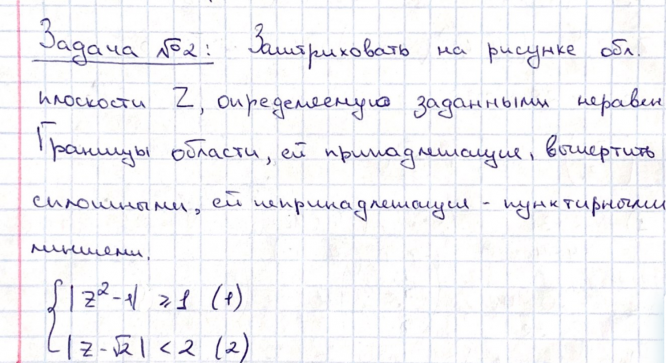 Задача №2: Заштриховать на рисунке обл.
плоскости Z, определяемую заданными неравен
Границы области, ей принадлежащие, вычертить
сплошными, ей непринадлежащия - пунктирными
линиями.
{ |z²-1| ≥ 1 (1)
|z-√2| < 2 (2)